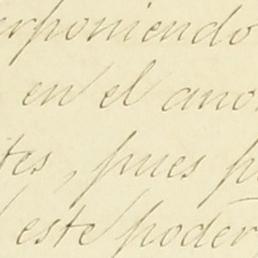 erponiendo
en el ano
tes, pues p
este poder